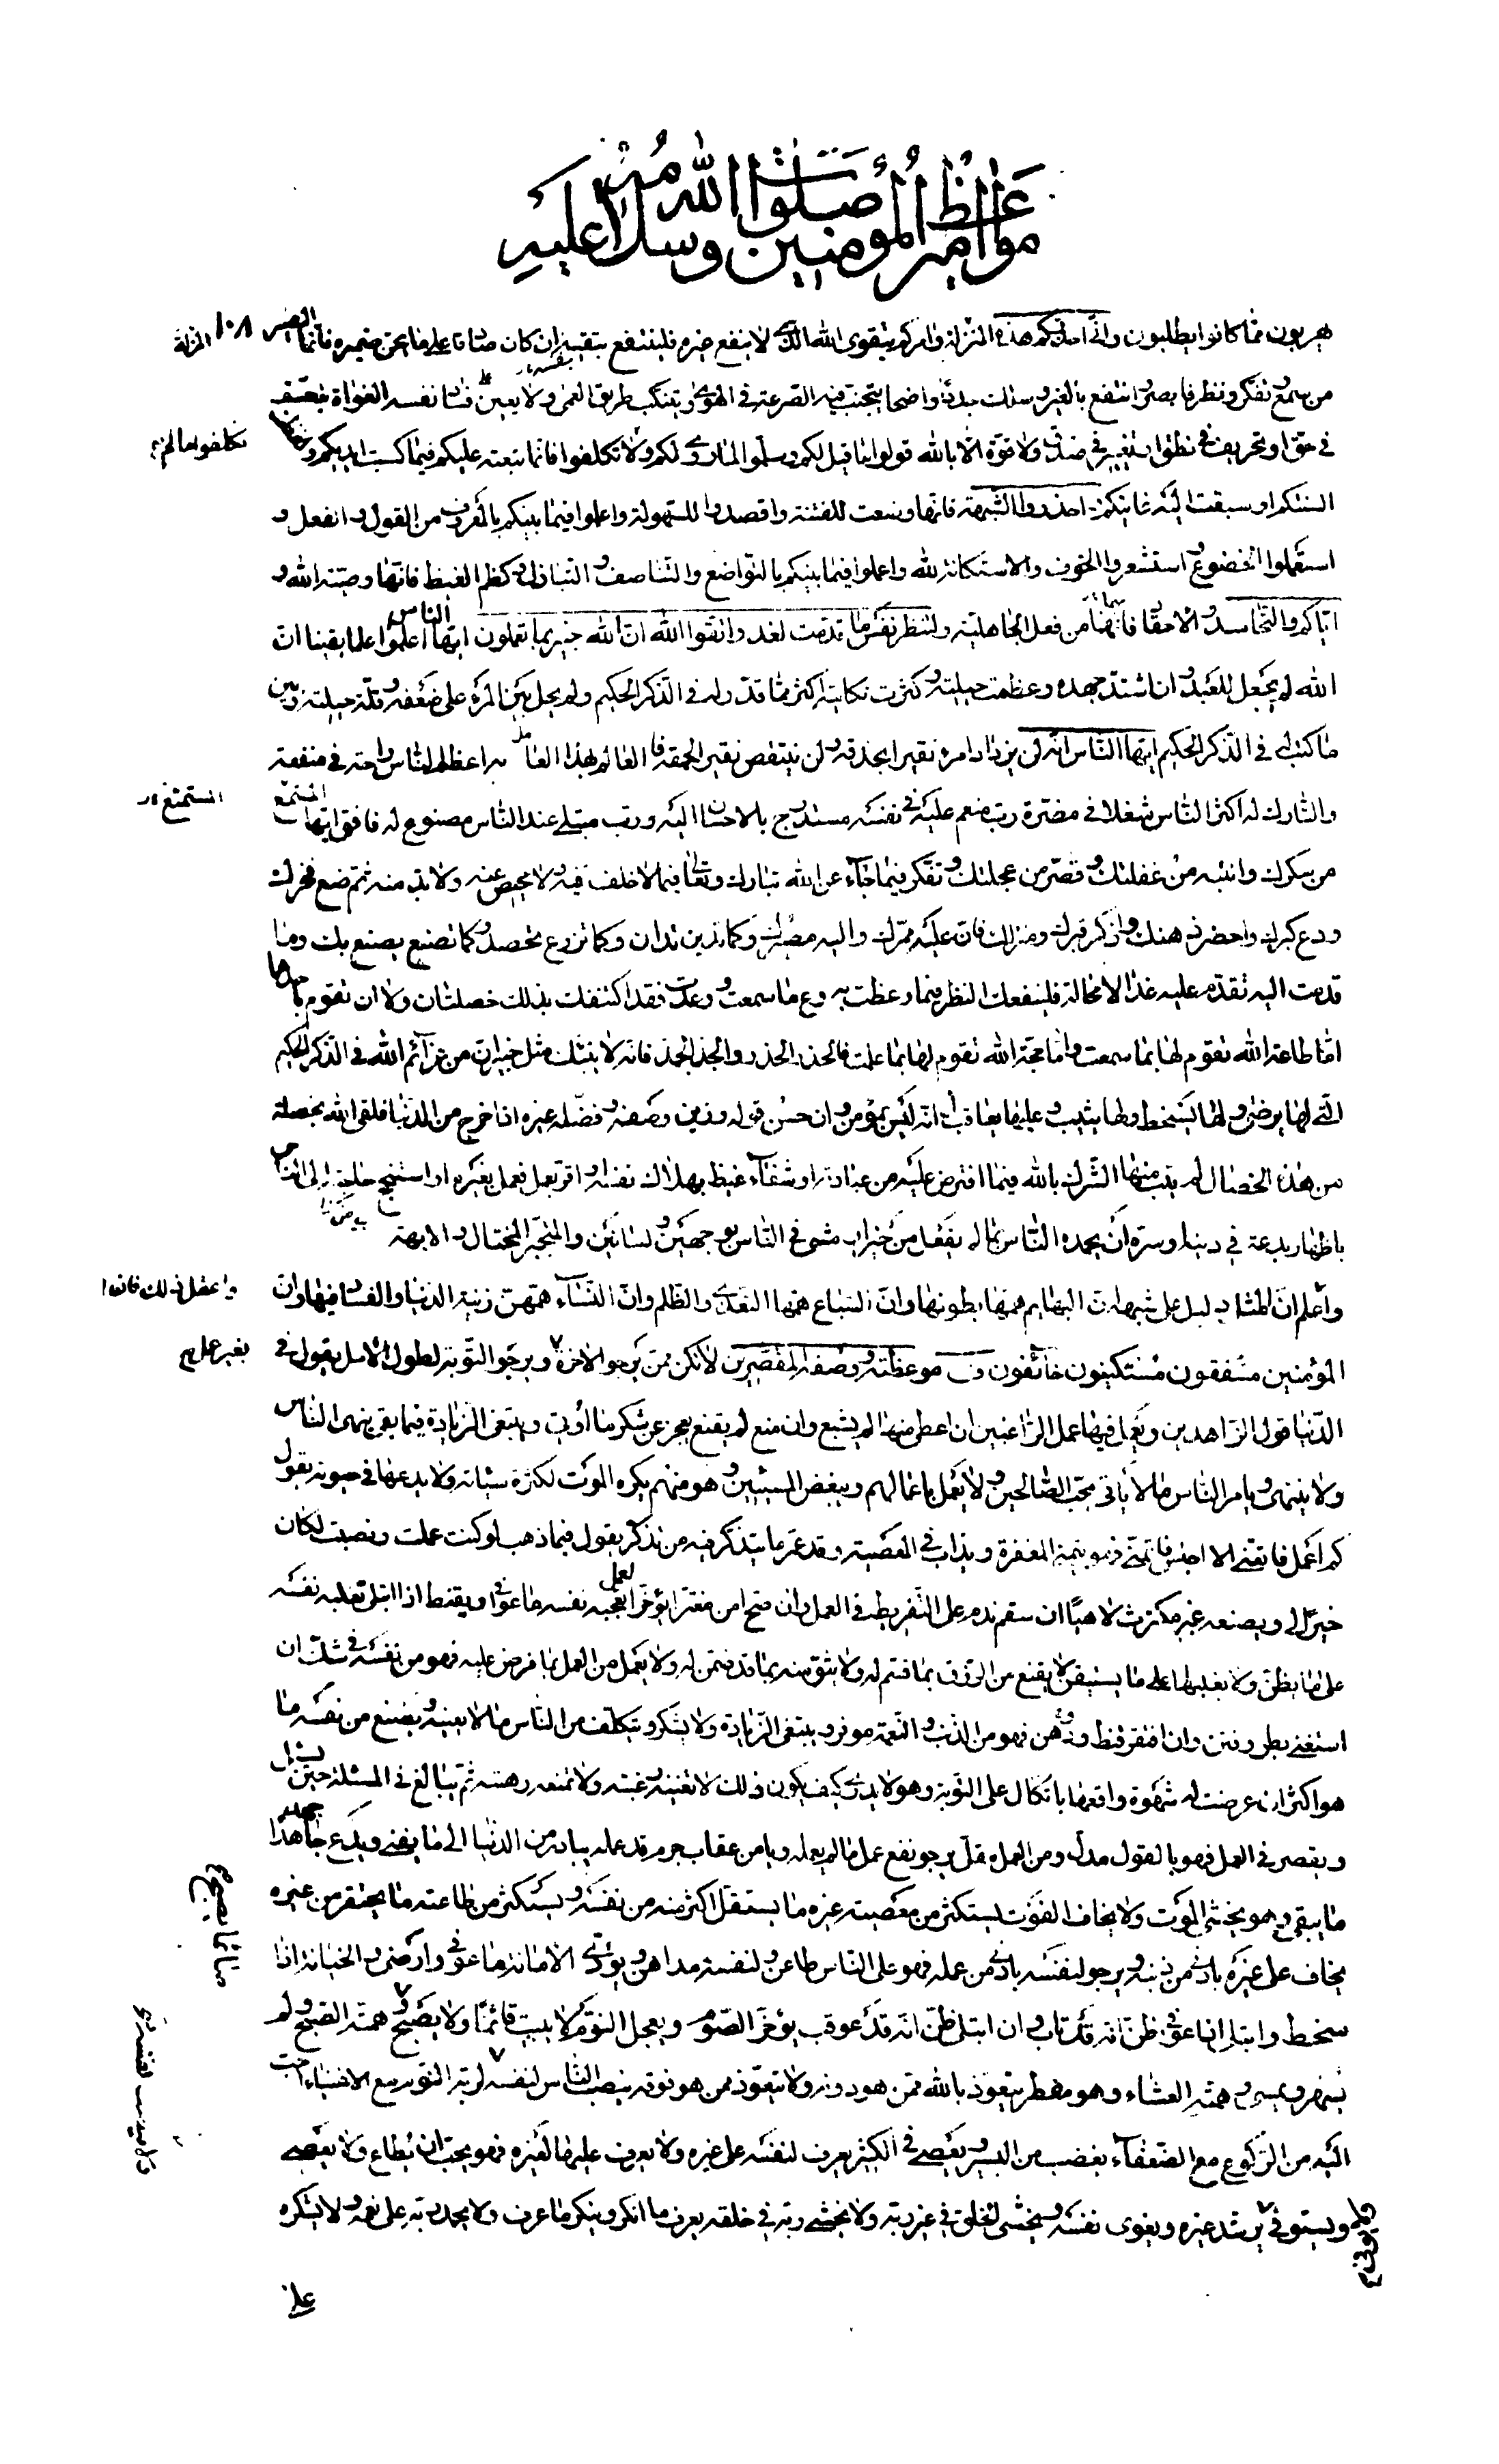 مواعظ أمير المؤمنين صلوات الله وسلامه عليه
هربون مما كانوا يطلبون وإني احذركم هذه المنزلة وامركم بتقوى الله الذي لا ينفع غيره فلينتفع بنفسه ان كان صادقا على ما يجن ضميره فانما البصير
١٠٨
المزلة
من سمع وتفكر ونظر فابصر وانتفع بالعبر وسلك جددا واضحا يتجنب فيه الصرعة في الهوى ويتنكب طريق العمى ولا يعين على فساد نفسه الغواة بتعسف
في حق او تحريف في نطق او تغيير في صدق ولا قوة الا بالله قولوا ما قيل لكم وسلموا لما روي لكم ولا تكلفوا فانما تبعته عليكم فيما كسبت ايديكم
تكلفوا ما لم
السنتكم او سبقت اليه غايتكم احذروا الشبهة فانها وضعت للفتنة واقصدوا السهولة واعملوا فيما بينكم بالمعروف من القول والفعل و
استعملوا الخضوع واستشعروا الخوف والاستكانة لله واعملوا فيما بينكم بالتواضع والتناصف والتباذل وكظم الغيظ فانها وصية الله و
اياكم والتحاسد والاحقاد فانهما من فعل الجاهلية ولتنظر نفس ما قدمت لغد واتقوا الله ان الله خبير بما تعملون ايها الناس اعلموا علما يقينا ان
الله لم يجعل للعبد وان اشتد جهده وعظمت حيلته وكثرت نكايته اكثر مما قدر له في الذكر الحكيم ولم يحل بين المرء على ضعفه وقلة حيلته وبين
ما كتب له في الذكر الحكيم ايها الناس انه لن يزداد امرء نقيرا بحذقه ولن ينتقص نقيرا لحمقه فالعالم بهذا العامل به اعظم الناس راحة في منفعة
والتارك له اكثر الناس شغلا في مضرة رب منعم عليه في نفسه مستدرج بالاحسان اليه ورب مبتلى عند الناس مصنوع له فافق ايها المستمع
المستمتع
من سكرك وانتبه من غفلتك وقصر من عجلتك وتفكر فيما جاء عن الله تبارك وتعالى فيما لا خلف فيه ولا محيص عنه ولا بد منه ثم ضع فخرك
ودع كبرك واحضر ذهنك واذكر قبرك ومنزلك فان عليه ممرك واليه مصيرك وكما تدين تدان وكما تزرع تحصد وكما تصنع يصنع بك وما
قدمت اليه تقدم عليه غدا لا محالة فلينفعك النظر فيما وعظت به وع ما سمعت ووعدت فقد اكتنفك بذلك خصلتان ولا ان تقوم باحدهما
اما طاعة الله تقوم لها بما سمعت واما حجة الله تقوم لها بما علمت فالحذر الحذر والجد الجد فانه لا ينبئك مثل خبير ان من عزائم الله في الذكر الحكيم
التي لها يرضى ولها يسخط ولها يثيب وعليها يعاقب انه ليس بمؤمن وان حسن قوله وزين وصفه وفضله غيره اذا خرج من الدنيا فلقى الله بخصلة
من هذه الخصال لم يتب منها الشرك بالله فيما افترض عليه من عبادته او شفاء غيظ بهلاك نفسه او اقر بعمل فعمل بغيره او استنجح حاجة الى الناس
باظهار بدعة في دينه او سره ان يحمده الناس بما لم يفعل من خير او مشى في الناس بوجهين ولسانين والتجبر المختال والابهة
واعلم ان المثل دليل على شبهه ان البهايم همها بطونها وان السباع همها التعدي والظلم وان النساء همهن زينة الدنيا والفساد فيها وان
واعقل ذلك فان
المؤمنين مشفقون مستكينون خائفون موعظته ووصفه المقصرين لا تكن ممن يرجو الاخرة ويرجو التوبة لطول الامل يقول في
بغير عمل
الدنيا قول الزاهدين ويعمل فيها عمل الراغبين ان اعطى منها لم يشبع وان منع لم يقنع يعجز عن شكر ما اوتي ويبتغى الزيادة فيما بقي ينهى الناس
ولا ينتهى ويامر الناس ما لا ياتي يحب الصالحين ولا يعمل باعمالهم ويبغض المسيئين وهو منهم يكره الموت لكثرة سيئاته ولا يدعها في حيوته يقول
كم اعمل فاتعنى الا اجلس فاتمنى فهو يتمنى المغفرة ويداب في المعصية وقد عمر ما يتذكر فيه من تذكر يقول فيما ذهب لو كنت عملت ونصبت لكان
خيرا لي ويضيعه غير مكترث لاهيا ان سقم ندم على التفريط في العمل وان صح امن مغترا يؤخر العمل تعجبه نفسه ما عوفي ويقنط اذا ابتلى تغلبه نفسه
على ما يظن ولا يغلبها على ما يستيقن لا يقنع من الرزق بما قسم له ولا يثق منه بما قد ضمن له ولا يعمل من العمل بما فرض عليه فهو من نفسه في شك ان
استغنى بطر وفتن وان افتقر قنط ووهن فهو من الذنب والنعمة موفر ويبتغى الزيادة ولا يشكر ويتكلف من الناس ما لا يعنيه ويضيع من نفسه ما
هو اكثر ان عرضت له شهوة واقعها باتكال على التوبة وهو لا يدري كيف يكون ذلك لا تغنيه رغبته ولا تمنعه رهبته ثم يبالغ في المسئلة حين يسئل
ويقصر في العمل فهو بالقول مدل ومن العمل مقل يرجو نفع عمل ما لم يعمله ويامن عقاب جرم قد عمله يبادر من الدنيا الى ما يفنى ويدع جاهدا
ما يبقى وهو يخشى الموت ولا يخاف الفوت يستكثر من معصية غيره ما يستقل اكثر منه من نفسه ويستكثر من طاعته ما يحتقر من غيره
يخاف على غيره بادنى من ذنبه ويرجو لنفسه بادنى من عمله فهو على الناس طاعن ولنفسه مداهن ويؤدي الامانة ما عوفي وارضى والخيانة اذا
سخط وابتلى اذا عوفي ظن انه قد تاب وان ابتلى ظن انه قد عوقب يؤخر الصوم ويعجل النوم لا يبيت قائما ولا يصبح همته الصبح ولم
يسهر ويمسى وهمته العشاء وهو مفطر يتعوذ بالله ممن هو دونه ولا يتعوذ ممن هو فوقه ينصب الناس لنفسه لربه النوم مع الاغنياء احب
اليه من الركوع مع الضعفاء يغضب من اليسير ويعصى في الكثير يعرف لنفسه على غيره ولا يعرف عليها لغيره فهو يحب ان يطاع ولا يعصى
ويستوفي يرشد غيره ويغوى نفسه ويخشى الخلق في غير ربه ولا يخشى ربه في خلقه يعرف ما انكر وينكر ما عرف ولا يحمد ربه على نعمه ولا يشكره
على